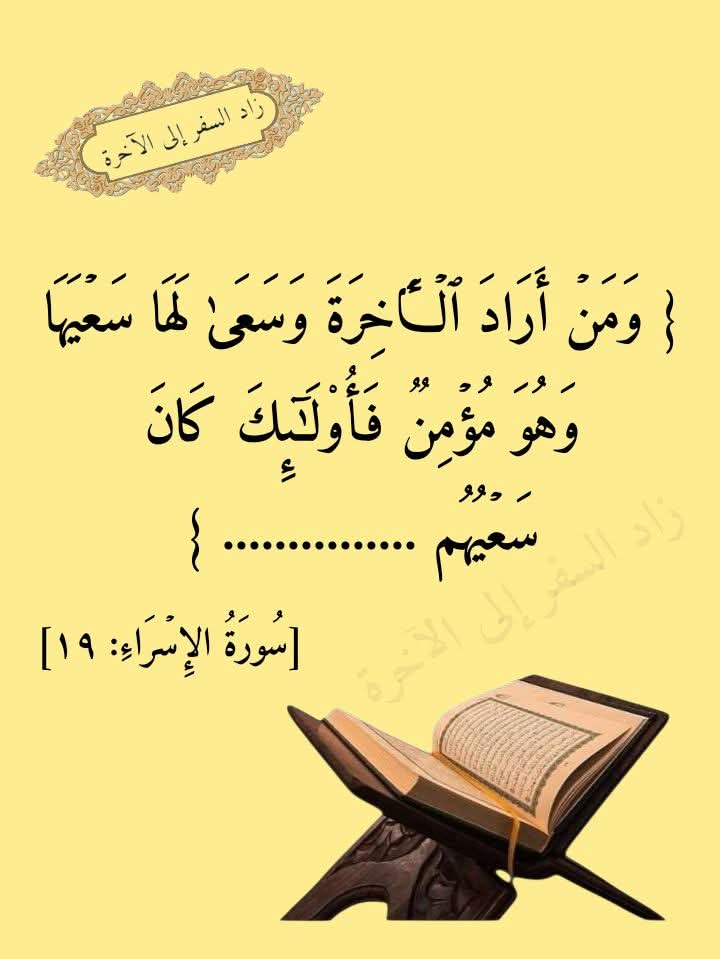 زاد السفر إلى الآخرة
{ وَمَنۡ أَرَادَ ٱلۡـَٔاخِرَةَ وَسَعَىٰ لَهَا سَعۡيَهَا
وَهُوَ مُؤۡمِنٌ فَأُوْلَـٰٓئِكَ كَانَ
سَعۡيُهُم ............... }
زاد السفر إلى الآخرة
[سُورَةُ الإِسۡرَاءِ: ١٩]